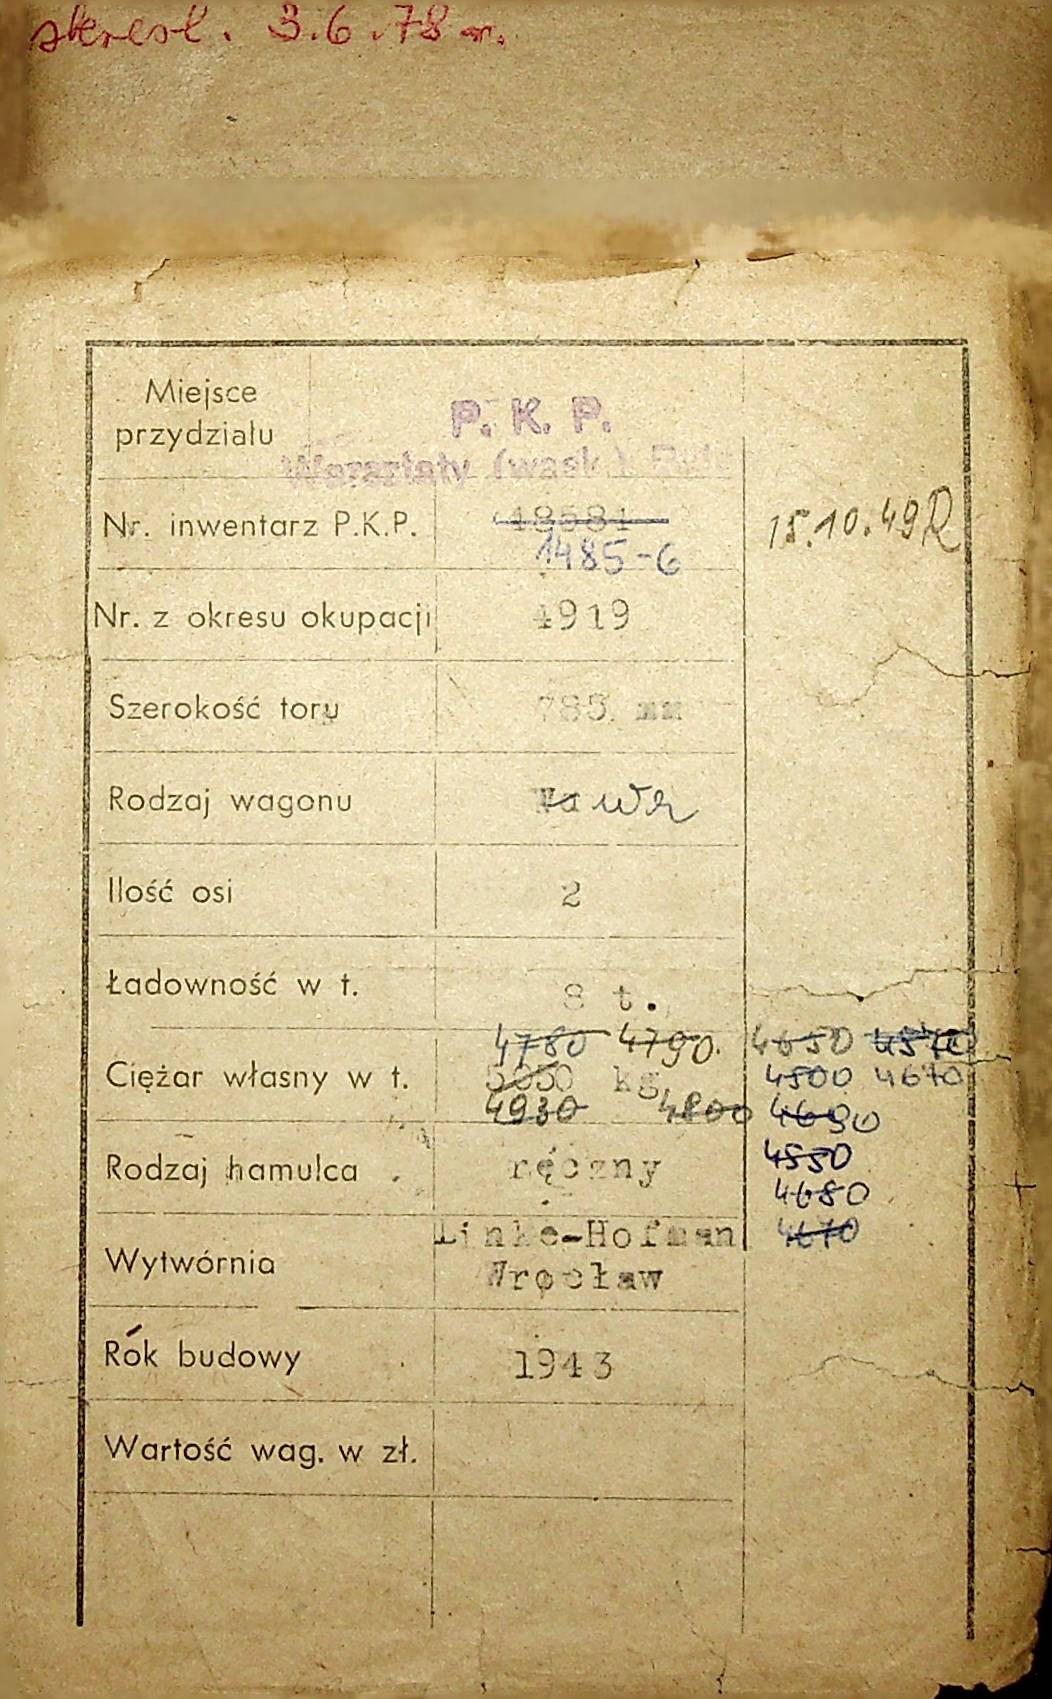 skreśl. 3.6.78 r.
Miejsce
przydziału
P. K. P.
Warsztaty (wąsk.)
Nr. inwentarz P.K.P.
1485-6
15.10.49 R
Nr. z okresu okupacji
4919
Szerokość toru
785 mm
Rodzaj wagonu
Wa
Ilość osi
2
Ładowność w t.
8 t.
4780 4790 4650 4570
Ciężar własny w t.
5030 kg 4500 4670
4930 4800 4690
4550
Rodzaj hamulca
ręczny
4680
4670
Wytwórnia
Linke-Hofman
Wrocław
Rok budowy
1943
Wartość wag. w zł.